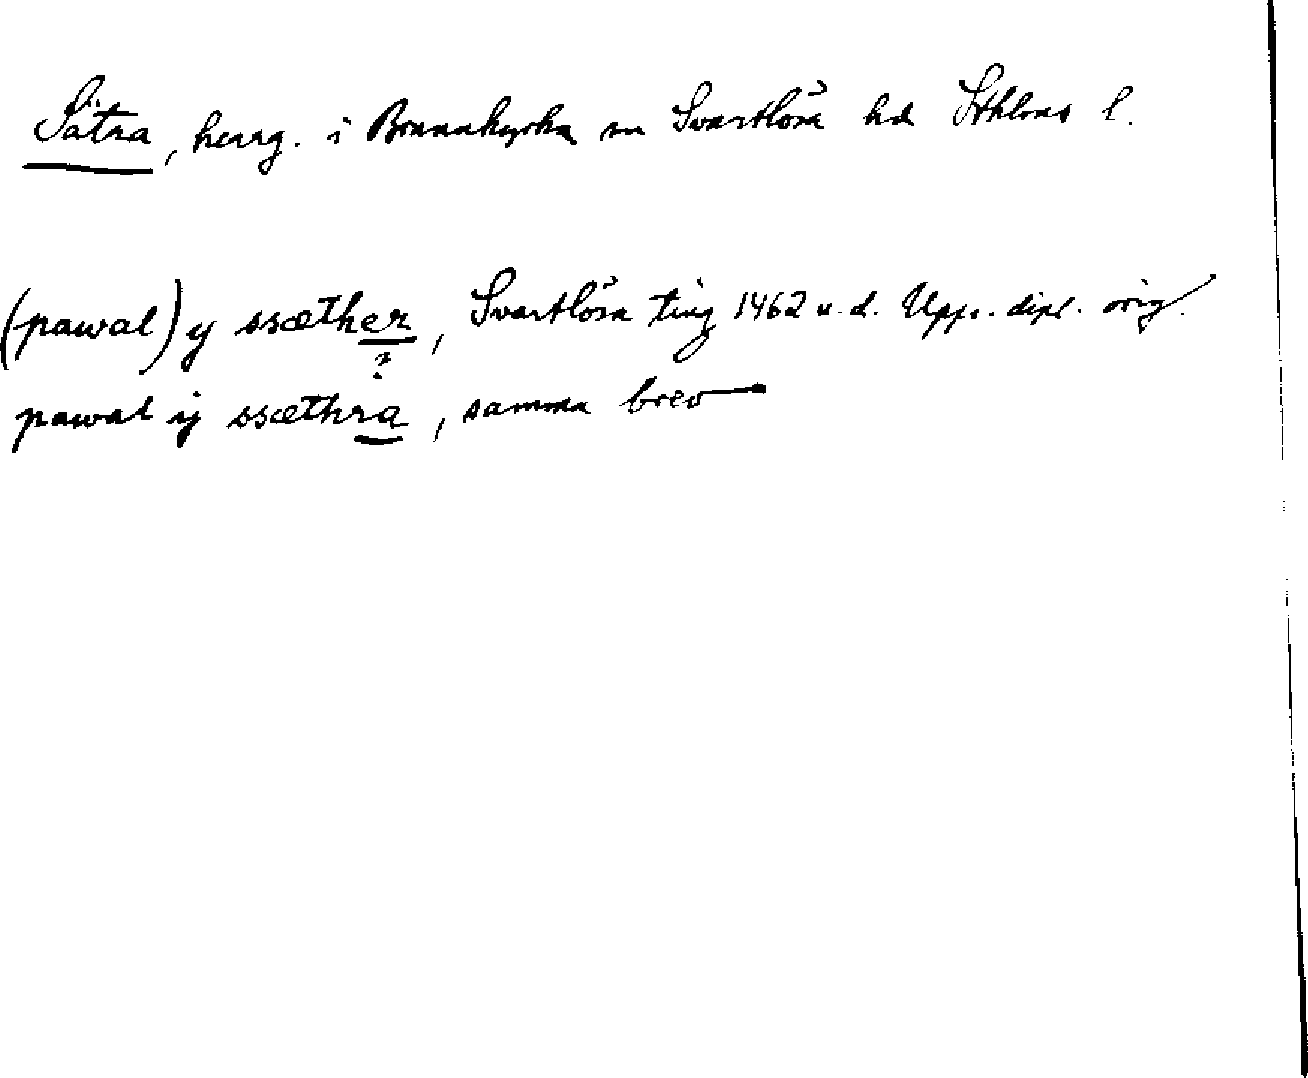 Sätra, herrg. i Brännkyrka sn Svartlösa hd Sthlms l.
(pawal) y ssæther, Svartlösa ting 1462 u.d. Upps. dipl. orig.
?
pawal ij ssæthra, samma brev